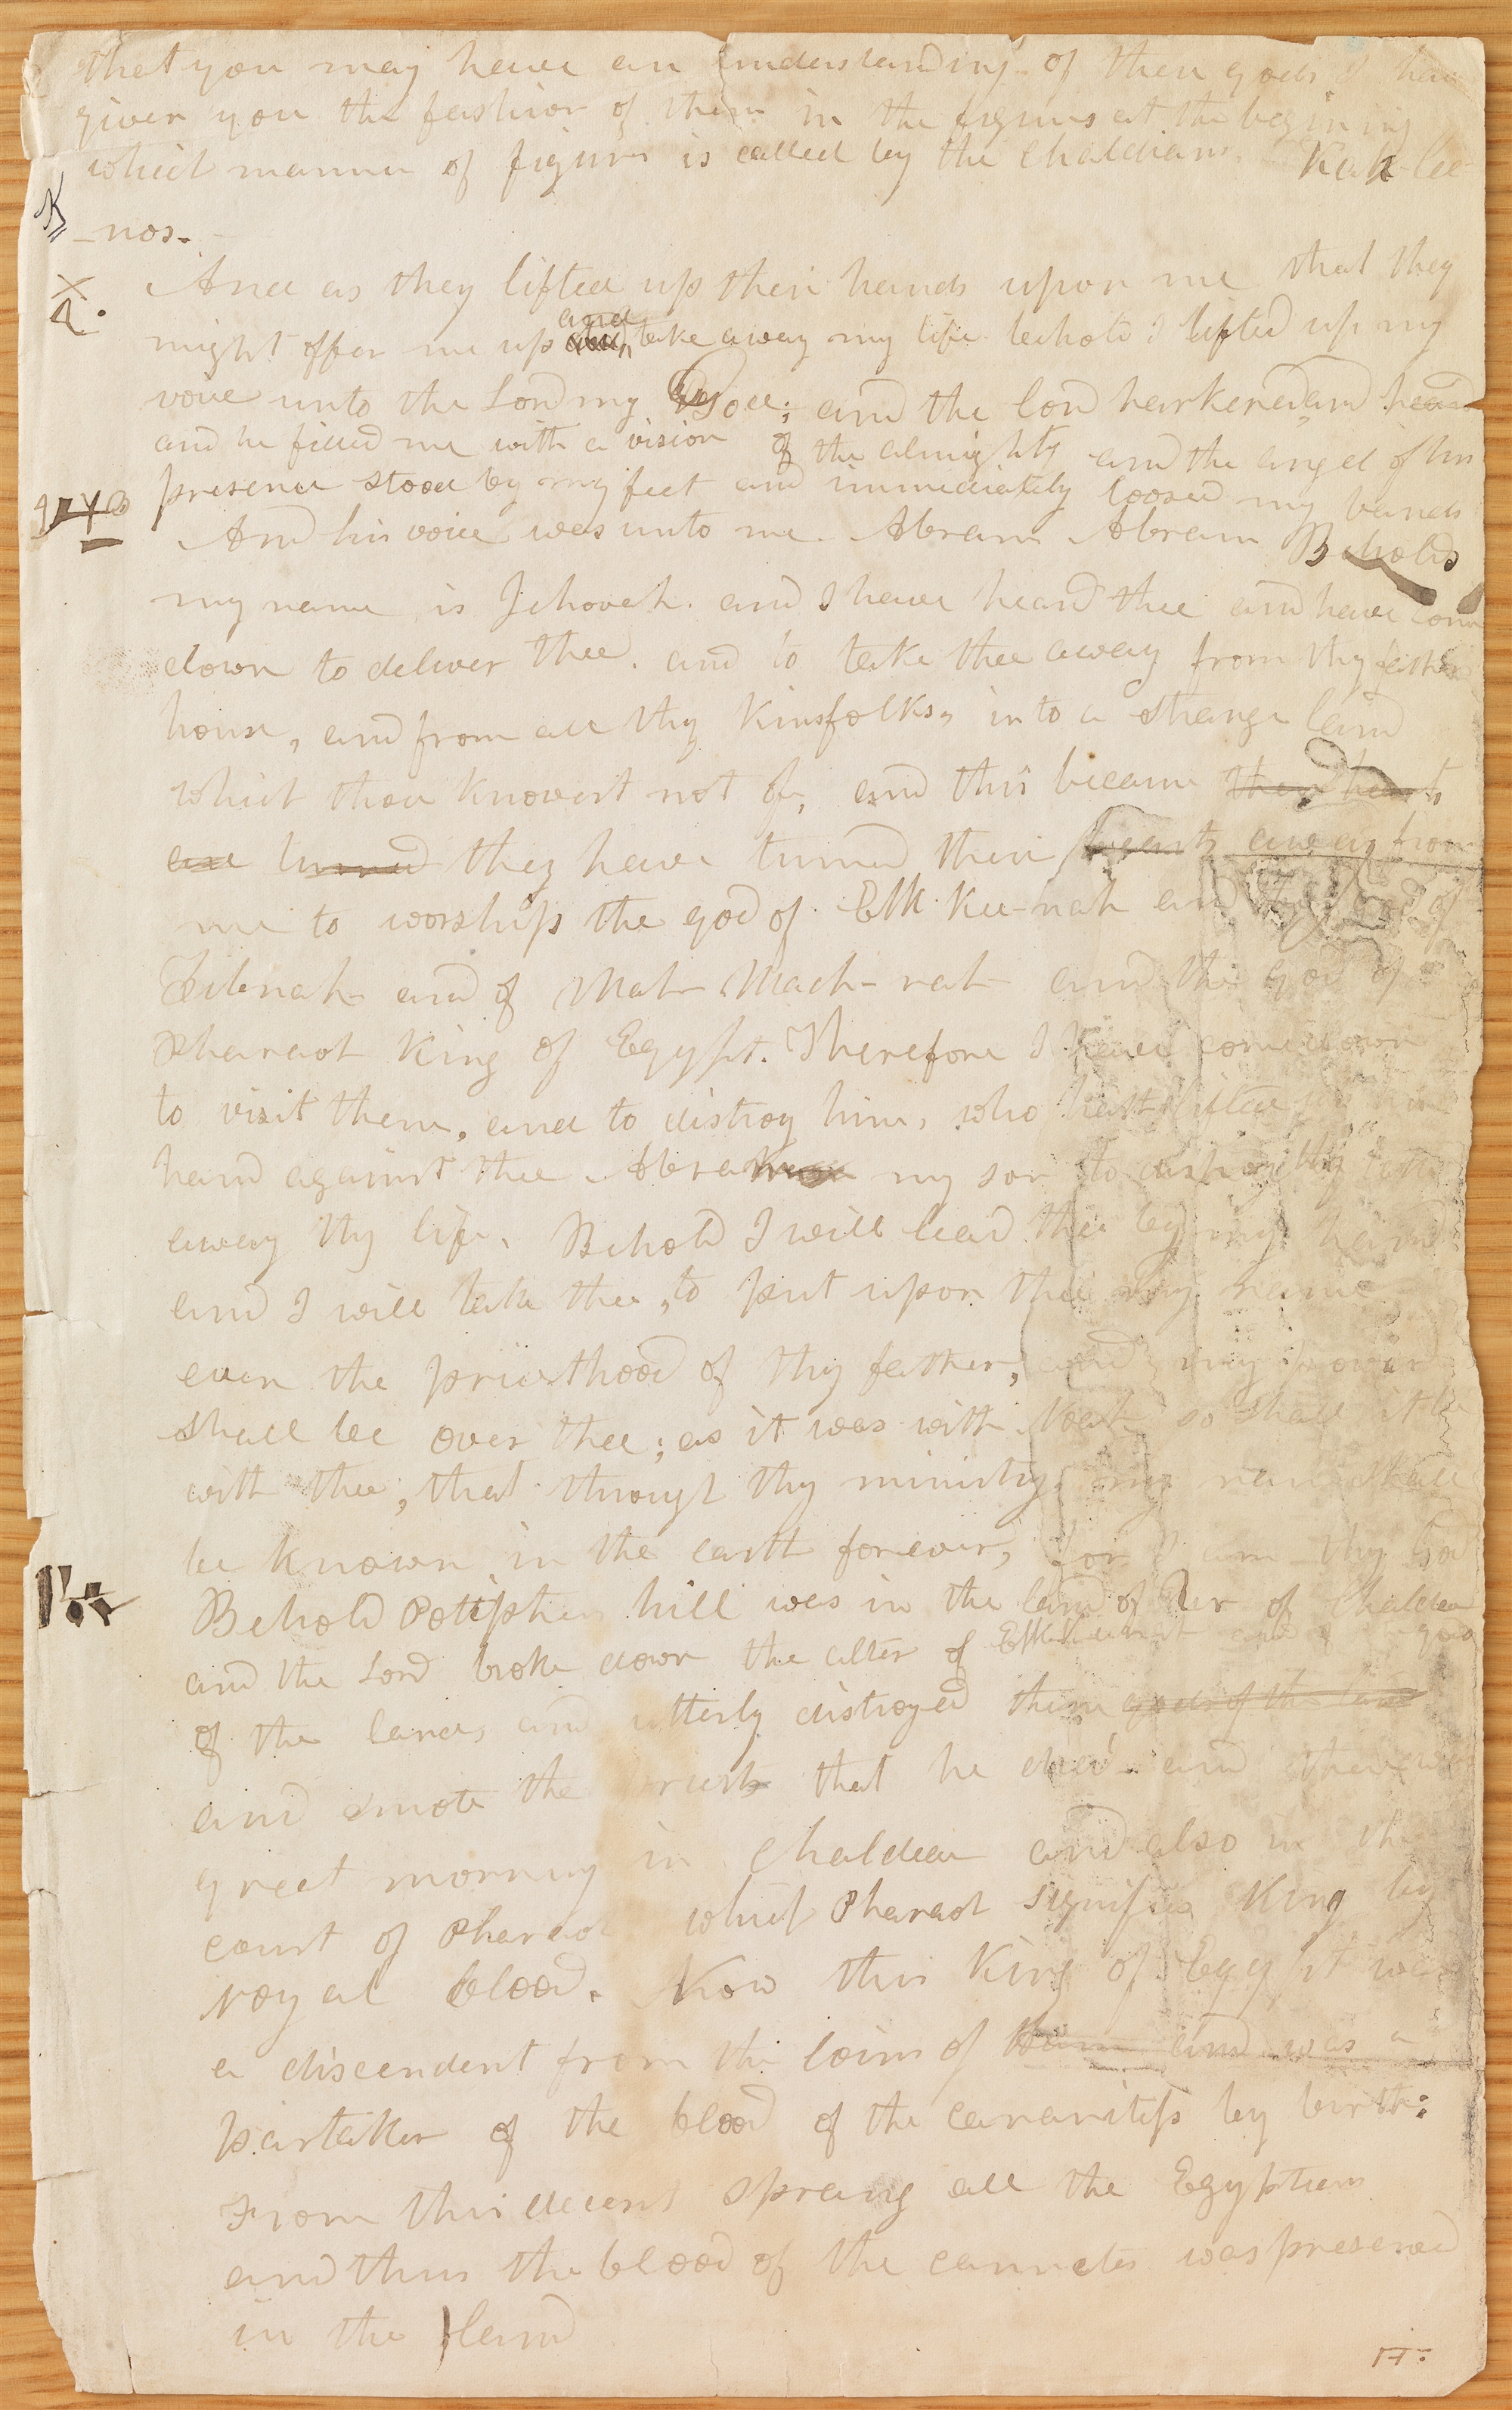 that you may have an understanding of their gods, I have
given you the fashion of them in the figures at the begining
which manner of figures is called by the chaldians. Kah-lee
-nos.
And as they lifted up their hands upon me that they
and
might offer me up take away my life behold I lifted up my
voice unto the Lord my God; and the lord harkened and heard
and he filled me with a vision of the almighty and the angel of his
presence stood by my feet and immediately loosed my bands
And his voice was unto me. Abram Abram Behold
my name is Jehovah. and I have heard thee and have come
down to deliver thee. and to take thee away from thy fathers
house, and from all thy Kinsfolks, into a strange land
which thou knowest not of, and this because their hearts
are turned they have turned their hearts away from
me to worship the god of Elk-Kee-nah and the god of
Zibnah and of Mah-Mach-rah and the god of
Pharaoh King of Egypt. Therefore I have come down
to visit them, and to distroy him, who hath lifted up his
hand against thee Abram my son to distroy thy take
away thy life. Behold I will lead thee by my hand
and I will take thee, to put upon thee my name
even the priesthood of thy father, and my power
shall be over thee; as it was with Noah so shall it be
with thee; that through thy ministry my name shall
be known in the earth forever, for I am thy God
Behold Potiphers hill was in the land of Ur of Chaldea
and the Lord broke down the alter of Elkkeenah and of the gods
of the land, and utterly distroyed them gods of the land
and smote the priest that he died and there was
great morning in Chaldea and also in the
court of Pharaoh which Pharaoh signifies King by
royal blood. Now this King of Egypt was
a discendent from the loins of Ham and was a
partaker of the blood of the cananitess by birth:
From this decent sprang all the Egyptians
and thus the blood of the cannites was preserved
in the land